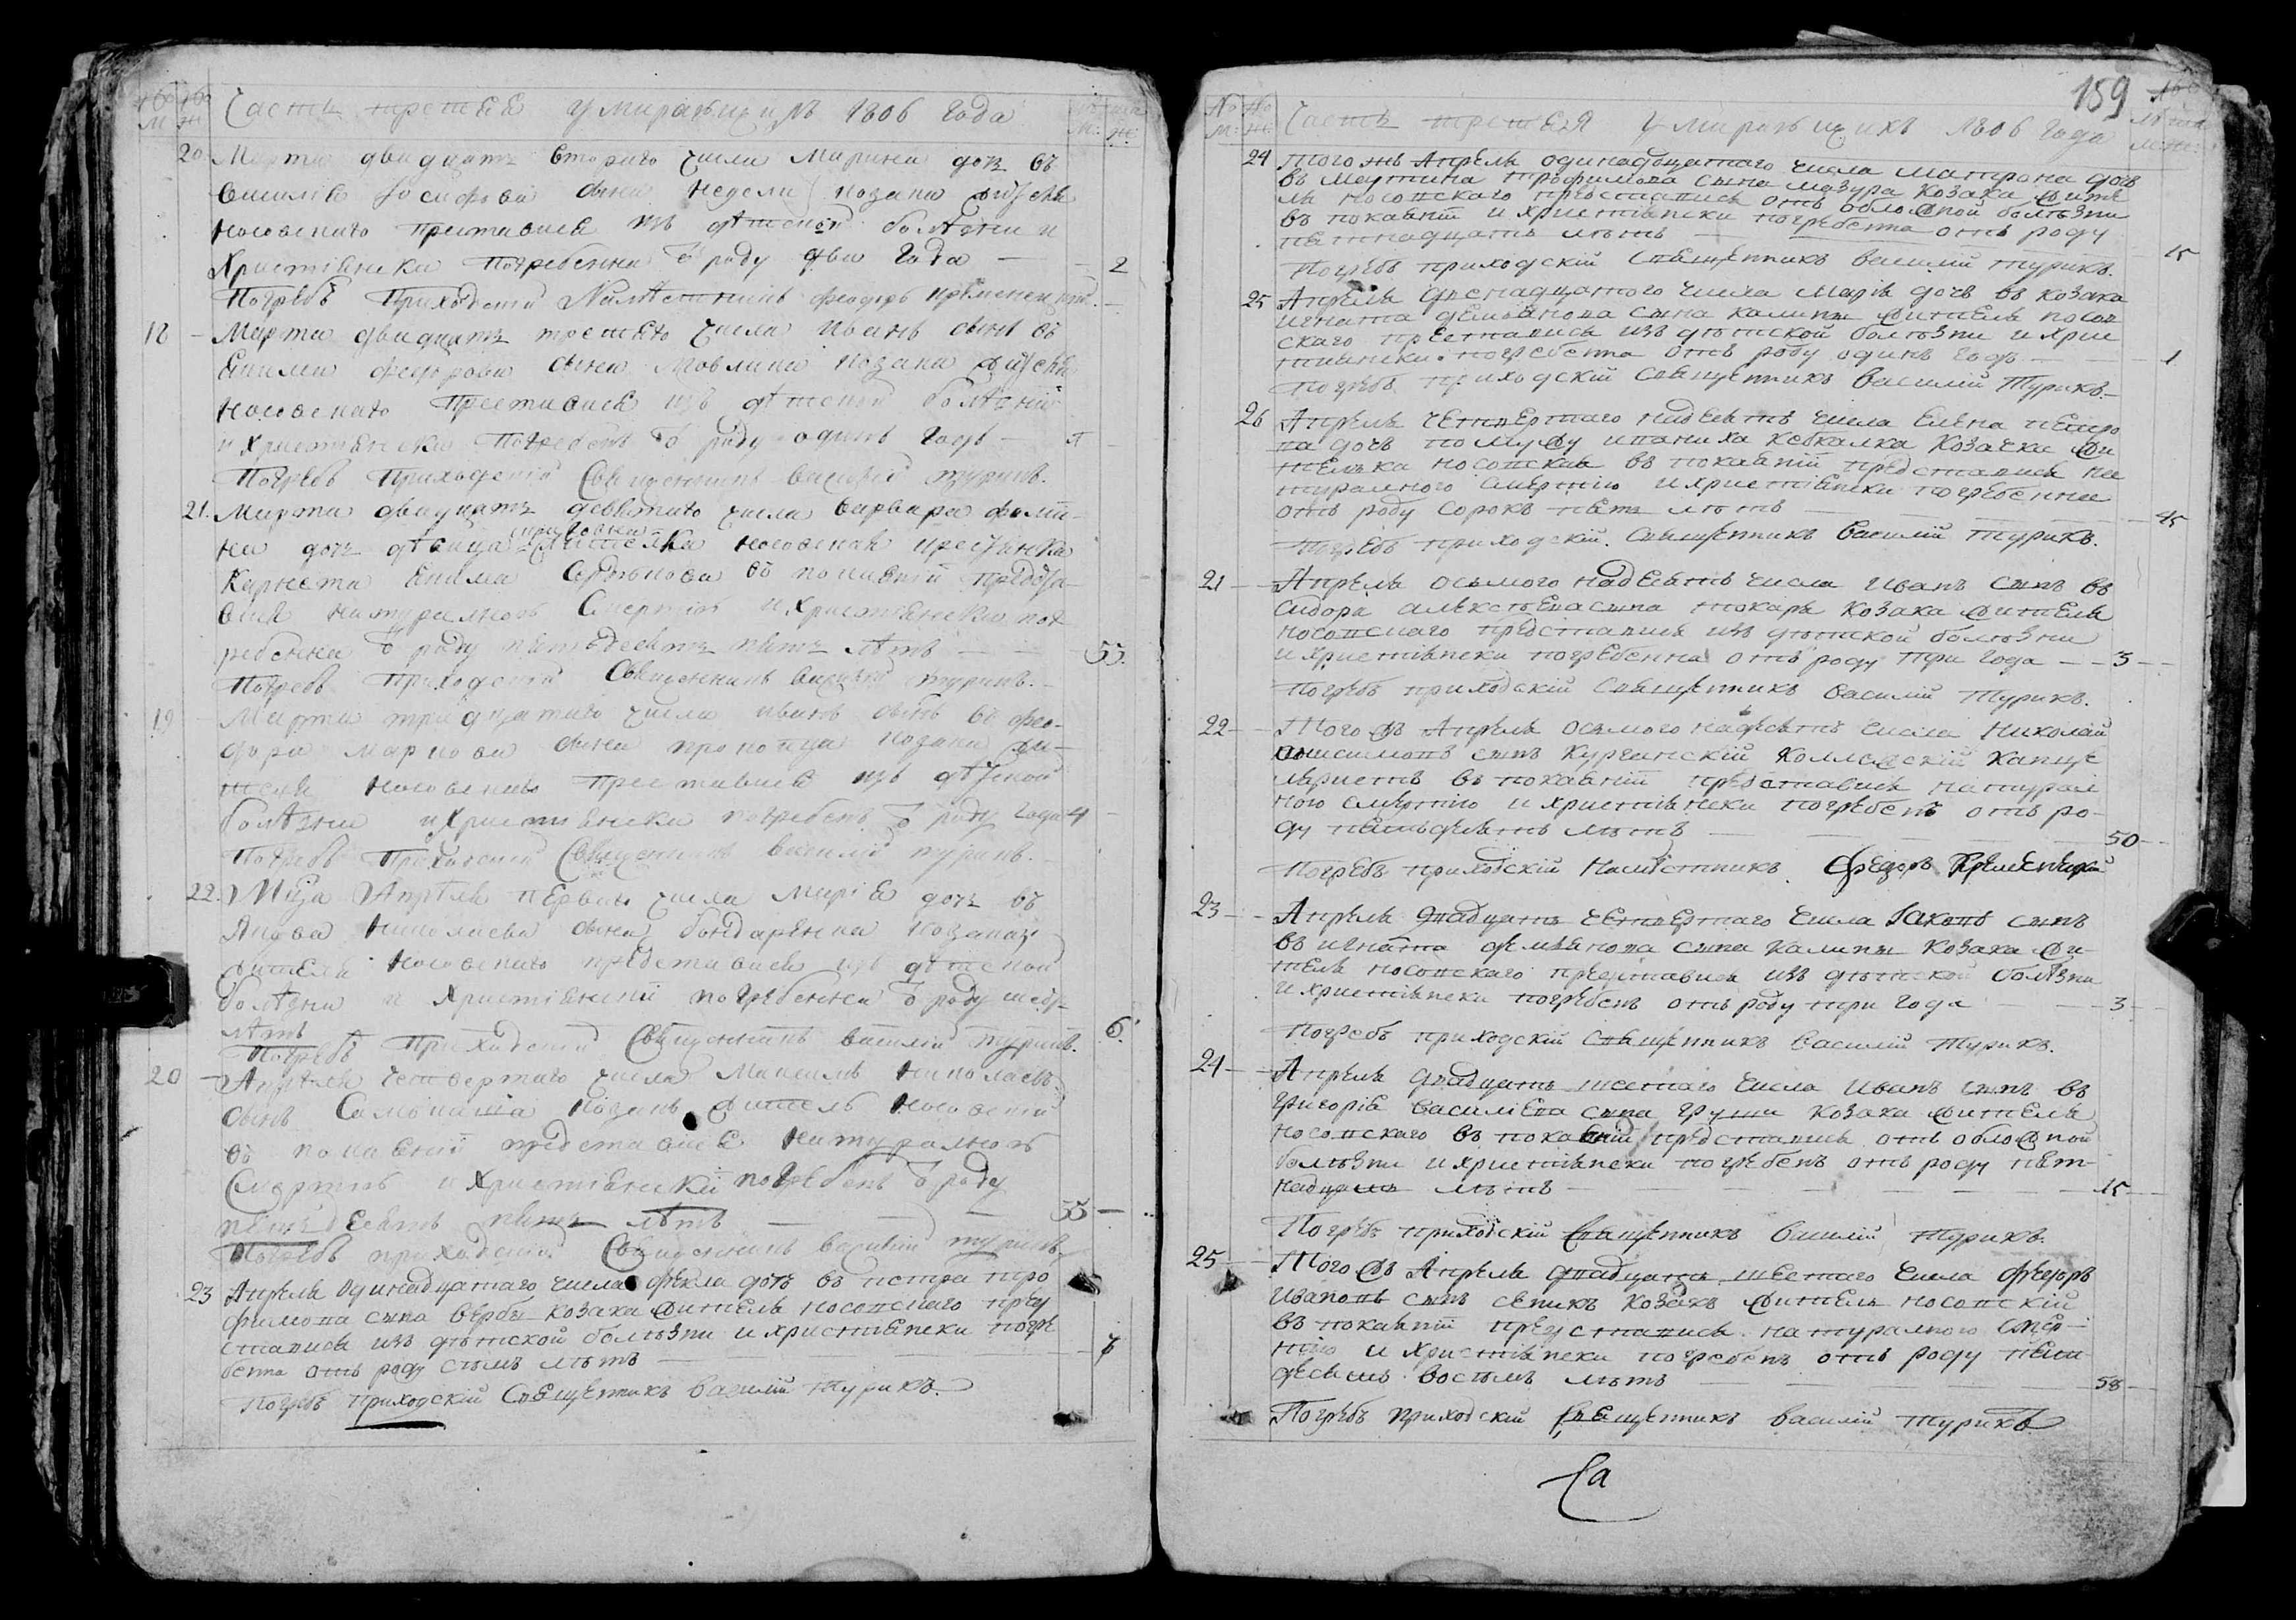 Часть третея умирающихъ 1806 года
20 Марта двадцать втораго числа Марина дочь въ
василія Іосифова сына недели козака жителя
носовскаго преставися изъ дѣтской болѣзни и
Христіянски погребенна ѿ роду два года — 2
Погребъ Приходскій Намѣстникъ феодоръ Кременецкій
18 Марта двадцать третего числа Иванъ сынъ въ
Якима федорова сына козака жителя
носовскаго преставися изъ дѣтской болѣзни
и христіянски погребенъ ѿ роду одинъ годъ —
Погребъ Приходскій Священникъ василій турикъ.
21. Марта двадцать девятаго числа варвара
дочь дѣвица жителка носовская
Якима въ покаяніи предста
вися натуралною Смертію и Христіянски пог
ребенна ѿ роду пятьдесятъ пять лѣтъ — 55.
Погребъ Приходскій Священникъ василій турикъ.
19 Марта тридцатаго числа иванъ сынъ въ фео-
дора Маркова сына прокопца козака жи-
теля носовскаго преставися изъ дѣтской
болѣзни и Христіянски погребенъ ѿ роду года 4
Погребъ Приходскій Священникъ василій турикъ.
22. Мца Апрѣля перваго числа Марія дочь въ
Якова николаева сына бондаренка козака
жителя носовскаго представися изъ дѣтской
болѣзни и Христіянскіи погребенна ѿ роду шесть
лѣтъ 6.
Погребъ Приходскій Священникъ василій турикъ.
20 Апрѣля четвертаго числа Максимъ николаевъ
сынъ козакъ житель носовскій
въ покаяніи представися натуралною
Смертію и Христіянскіи погребенъ ѿ роду
пятьдесятъ пять лѣтъ — 55
Погребъ приходскій Священникъ василій турикъ
23 Апреля одинадцатаго числа фекла дочь въ петра тро
фимова сына вербы козака жителя носовскаго пред
ставися изъ дѣтской болѣзни и христіянски погре
бенна отъ роду семъ лѣтъ — 7
Погребъ приходскій Священникъ Василій Турикъ.
159
Часть третея Умирающихъ 1806 года
24 Того жъ Апреля одинадцатаго числа матрона дочь
въ Мартина трофимова сына мазура козака жите
ля носовскаго представися отъ обложной болѣзни
въ покаяніи и христіянски погребенна отъ роду
пятнадцать лѣтъ — 15
Погребъ приходскій Священникъ Василій турикъ.
25 Апреля двенадцатого числа Марія дочь въ козака
игната демянова сына калины жителя носов
скаго преставися изъ дѣтской болѣзни и хрис
тиянски погребенна отъ роду одинъ годъ — 1
Погребъ приходскій Священникъ Василій Турикъ
26 Апреля четвертаго надесять числа Елена петро
ва дочь по мужу козачка жи
телька носовская въ покаяніи представися на
туралною смертію и христіянски погребенна
отъ роду сорокъ пять лѣтъ — 45
Погребъ приходскій Священникъ Василій Турикъ.
21 Апреля осьмого надесять числа Иванъ сынъ въ
сидора алексѣева сына токаря козака жителя
носовскаго представися изъ дѣтской болѣзни
и христіянски погребенна отъ роду три года — 3
Погребъ приходскій Священникъ Василій Турикъ.
22 Того жъ Апреля осьмого надесять числа Николай
онисимовъ сынъ Кургинскій Коллежскій Канце
ляристъ въ покаяніи представися натурал
ною смертію и христіянски погребенъ отъ ро-
ду пятьдесятъ лѣтъ — 50
Погребъ приходскій Намѣстникъ Феодоръ Кременецкій
23 Апреля двадцать четвертаго числа Іаковъ сынъ
въ игната демянова сына калины козака жи-
теля носовскаго представися изъ дѣтской болѣзни
и христіянски погребенъ отъ роду три года 3
Погребъ приходскій Священникъ Василій Турикъ.
24 Апреля двадцать шестаго числа Иванъ сынъ въ
григорія василіева сына груши козака жителя
носовскаго въ покаяніи представися отъ обложной
болѣзни и христіянски погребенъ отъ роду пят-
надцать лѣтъ — 15
Погребъ приходскій Священникъ Василій Турикъ.
25 Того жъ Апреля двадцать шестаго числа федоръ
Ивановъ сынъ сеникъ козакъ житель носовскій
въ покаяніи представися натуралною смер-
тію и христіянски погребенъ отъ роду пять
десятъ восемъ лѣтъ 58
Погребъ приходскій Священникъ Василій Турикъ